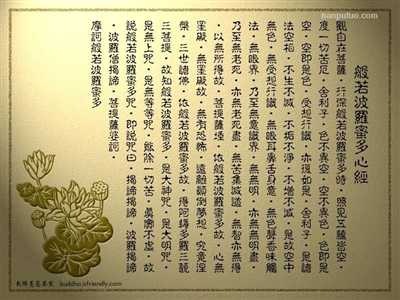 般若波羅蜜多心經
觀自在菩薩。行深般若波羅蜜多時。照見五蘊皆空。
度一切苦厄。舍利子。色不異空。空不異色。色即是
空。空即是色。受想行識。亦復如是。舍利子。是諸
法空相。不生不滅。不垢不淨。不增不減。是故空中
無色。無受想行識。無眼耳鼻舌身意。無色聲香味觸
法。無眼界。乃至無意識界。無無明。亦無無明盡。
乃至無老死。亦無老死盡。無苦集滅道。無智亦無得
。以無所得故。菩提薩埵。依般若波羅蜜多故。心無
罣礙。無罣礙故。無有恐怖。遠離顛倒夢想。究竟涅
槃。三世諸佛。依般若波羅蜜多故。得阿耨多羅三藐
三菩提。故知般若波羅蜜多。是大神咒。是大明咒。
是無上咒。是無等等咒。能除一切苦。真實不虛。故
說般若波羅蜜多咒。即說咒曰。揭諦揭諦。波羅揭諦
。波羅僧揭諦。菩提薩婆訶。
摩訶般若波羅蜜多
buddha.isfriendly.com